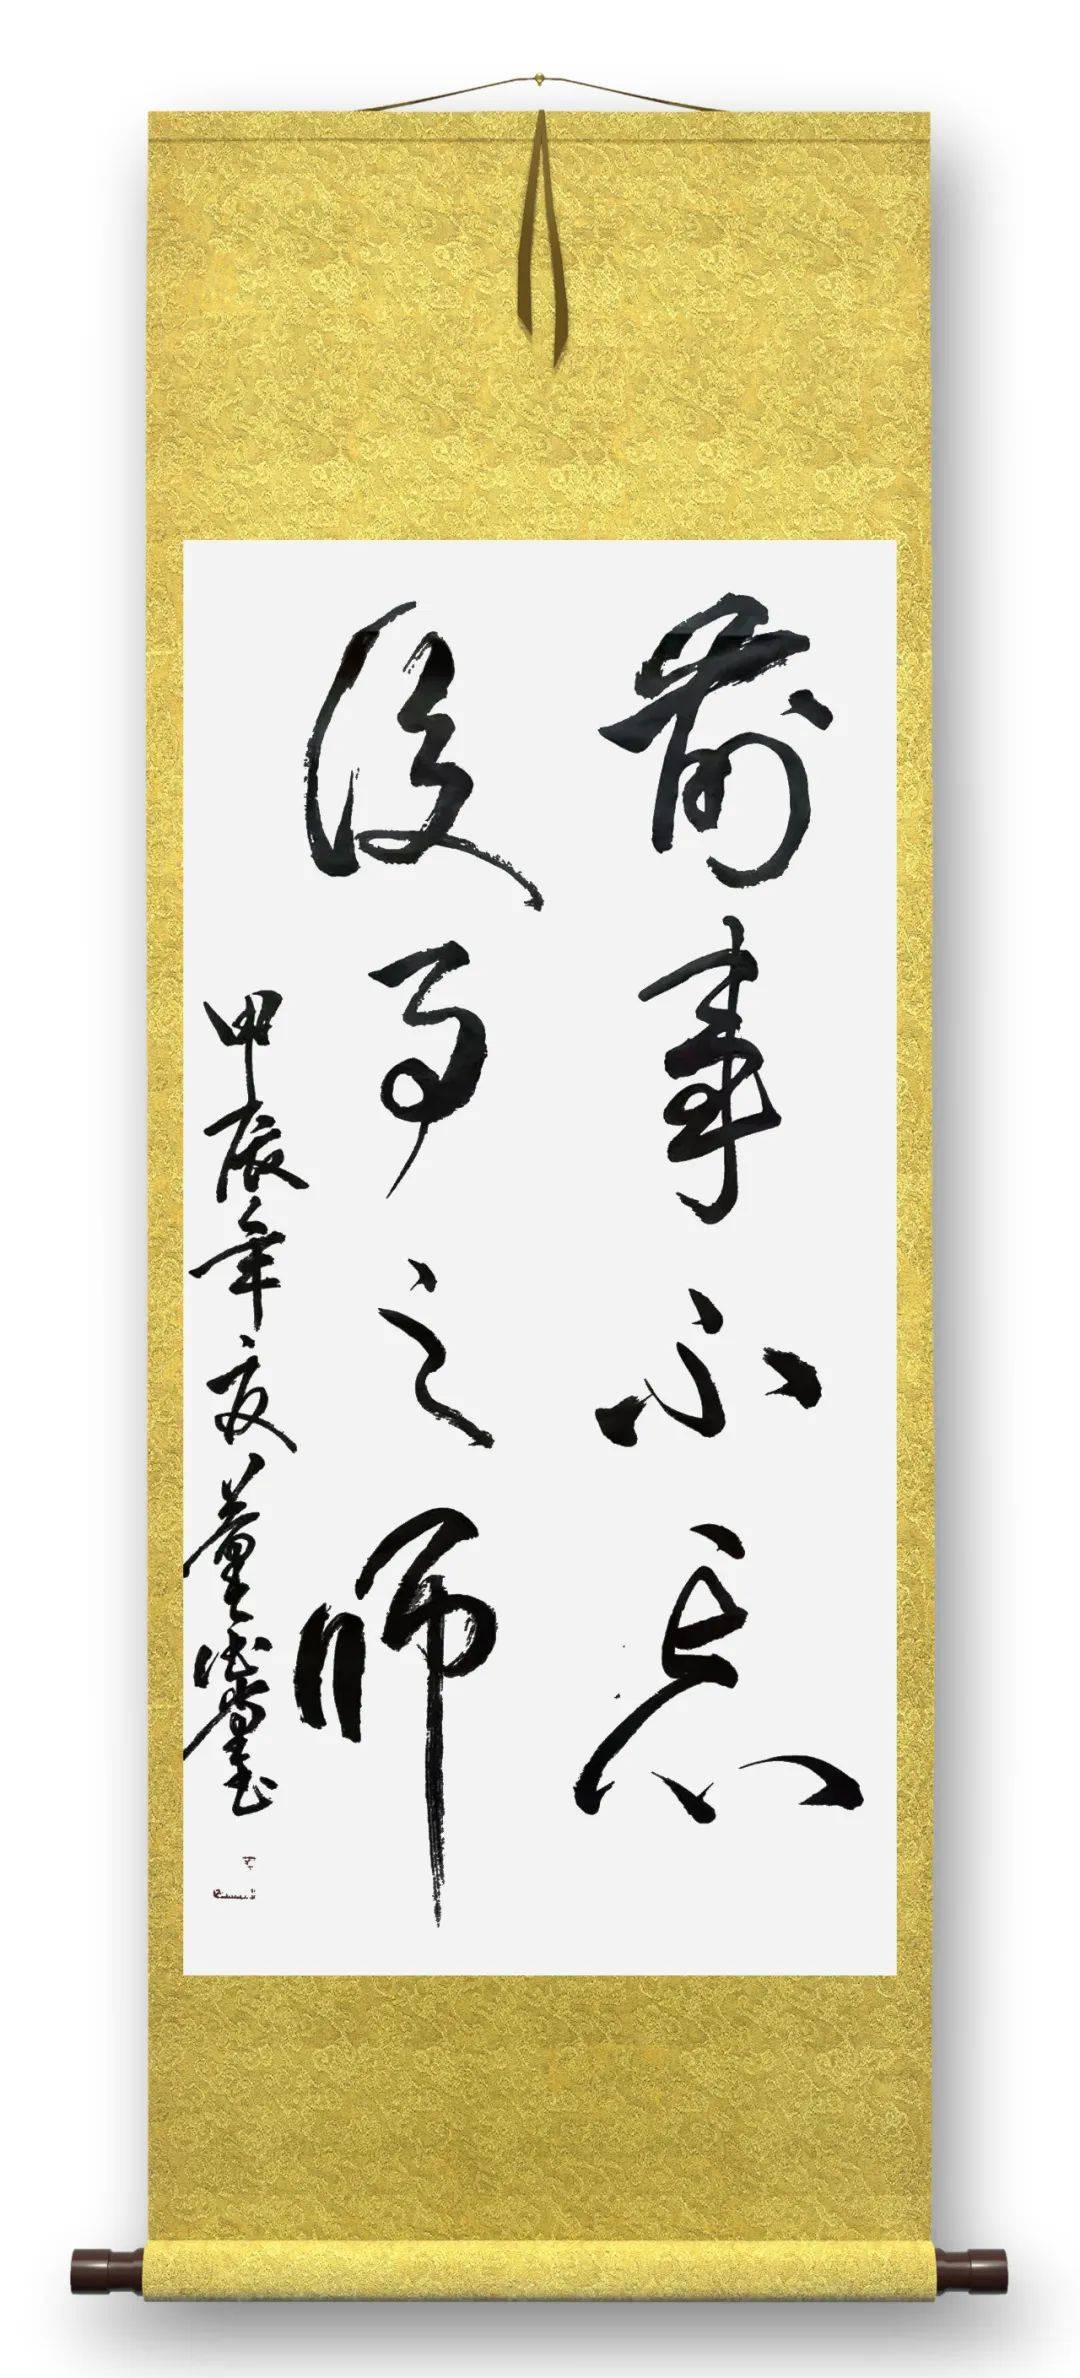 前事不忘
後事之師
甲辰年夏董